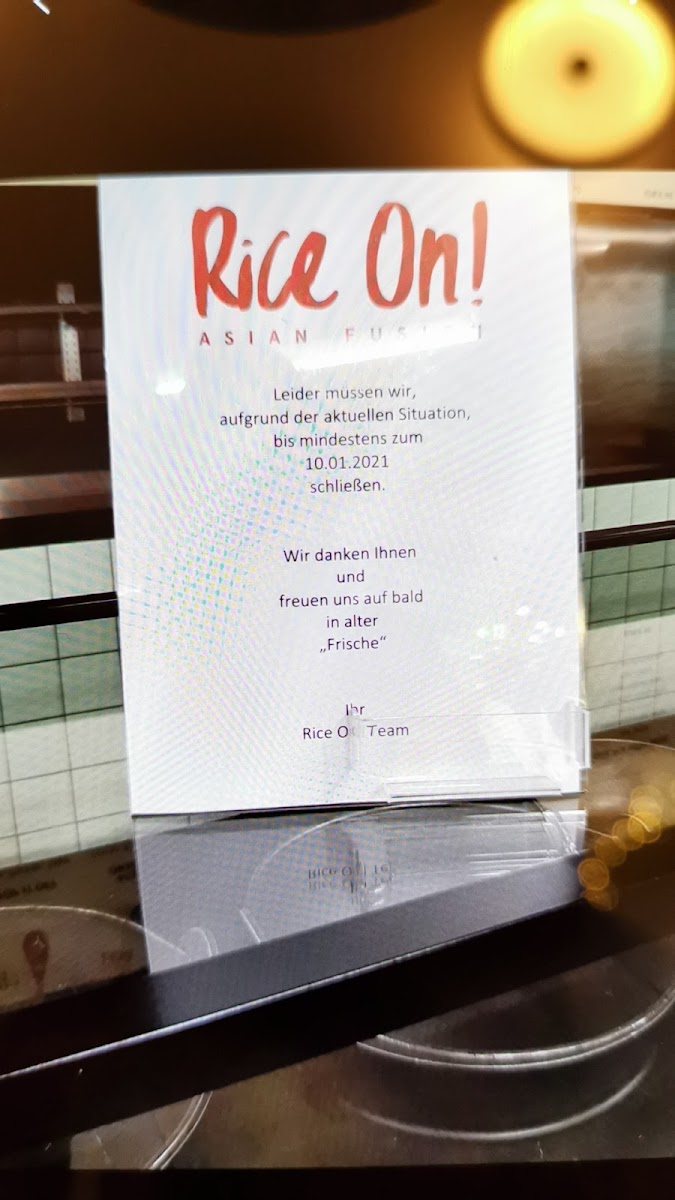 Rice On!
ASIAN FUSION
Leider müssen wir,
aufgrund der aktuellen Situation,
bis mindestens zum
10.01.2021
schließen.
Wir danken Ihnen
und
freuen uns auf bald
in alter
„Frische“
Ihr
Rice On Team